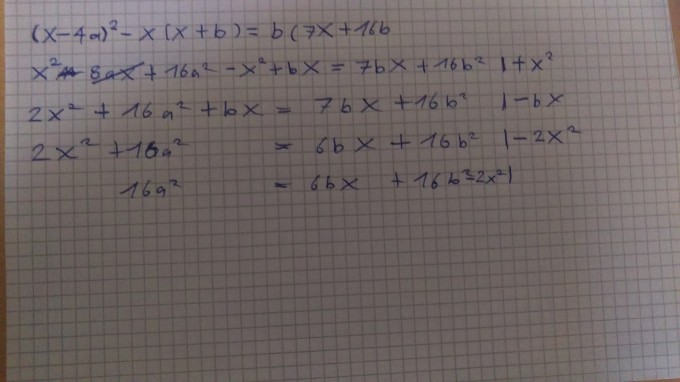 (x-4a)² - x(x+b) = b(7x+16b
x² - 8ax + 16a² - x² + bx = 7bx + 16b² |+x²
2x² + 16a² + bx = 7bx + 16b² |-bx
2x² + 16a² = 6bx + 16b² |-2x²
16a² = 6bx + 16b²-2x² |